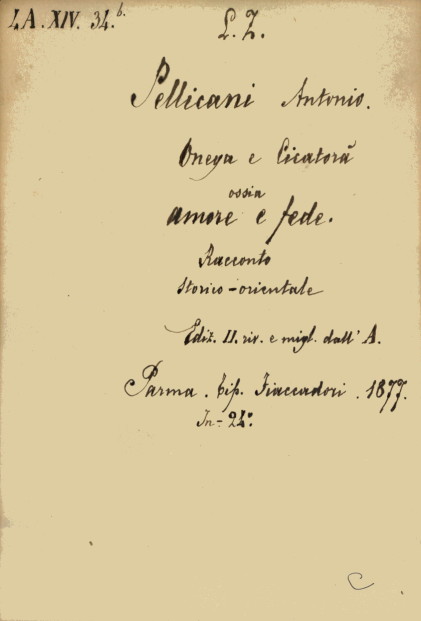 LA. XIV. 34.b.
L. Z.
Pellicani Antonio.
Onega e Cicatorà
ossia
amore e fede.
Racconto
storico-orientale
Ediz. II. riv. e migl. dall' A.
Parma. Tip. Fiaccadori. 1877.
In-24º